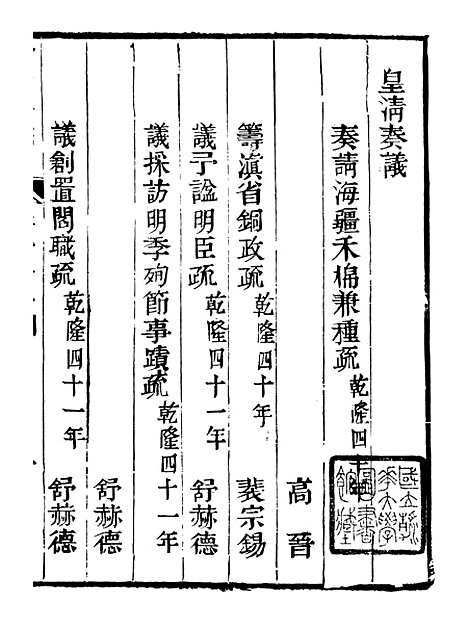 皇淸奏議
奏請海疆禾棉兼種疏 乾隆四十年
高晉
籌滇省銅政疏 乾隆四十年
裴宗錫
議予諡明臣疏 乾隆四十一年
舒赫德
議採訪明季殉節事蹟疏 乾隆四十一年
舒赫德
議創置閣職疏 乾隆四十一年
舒赫德